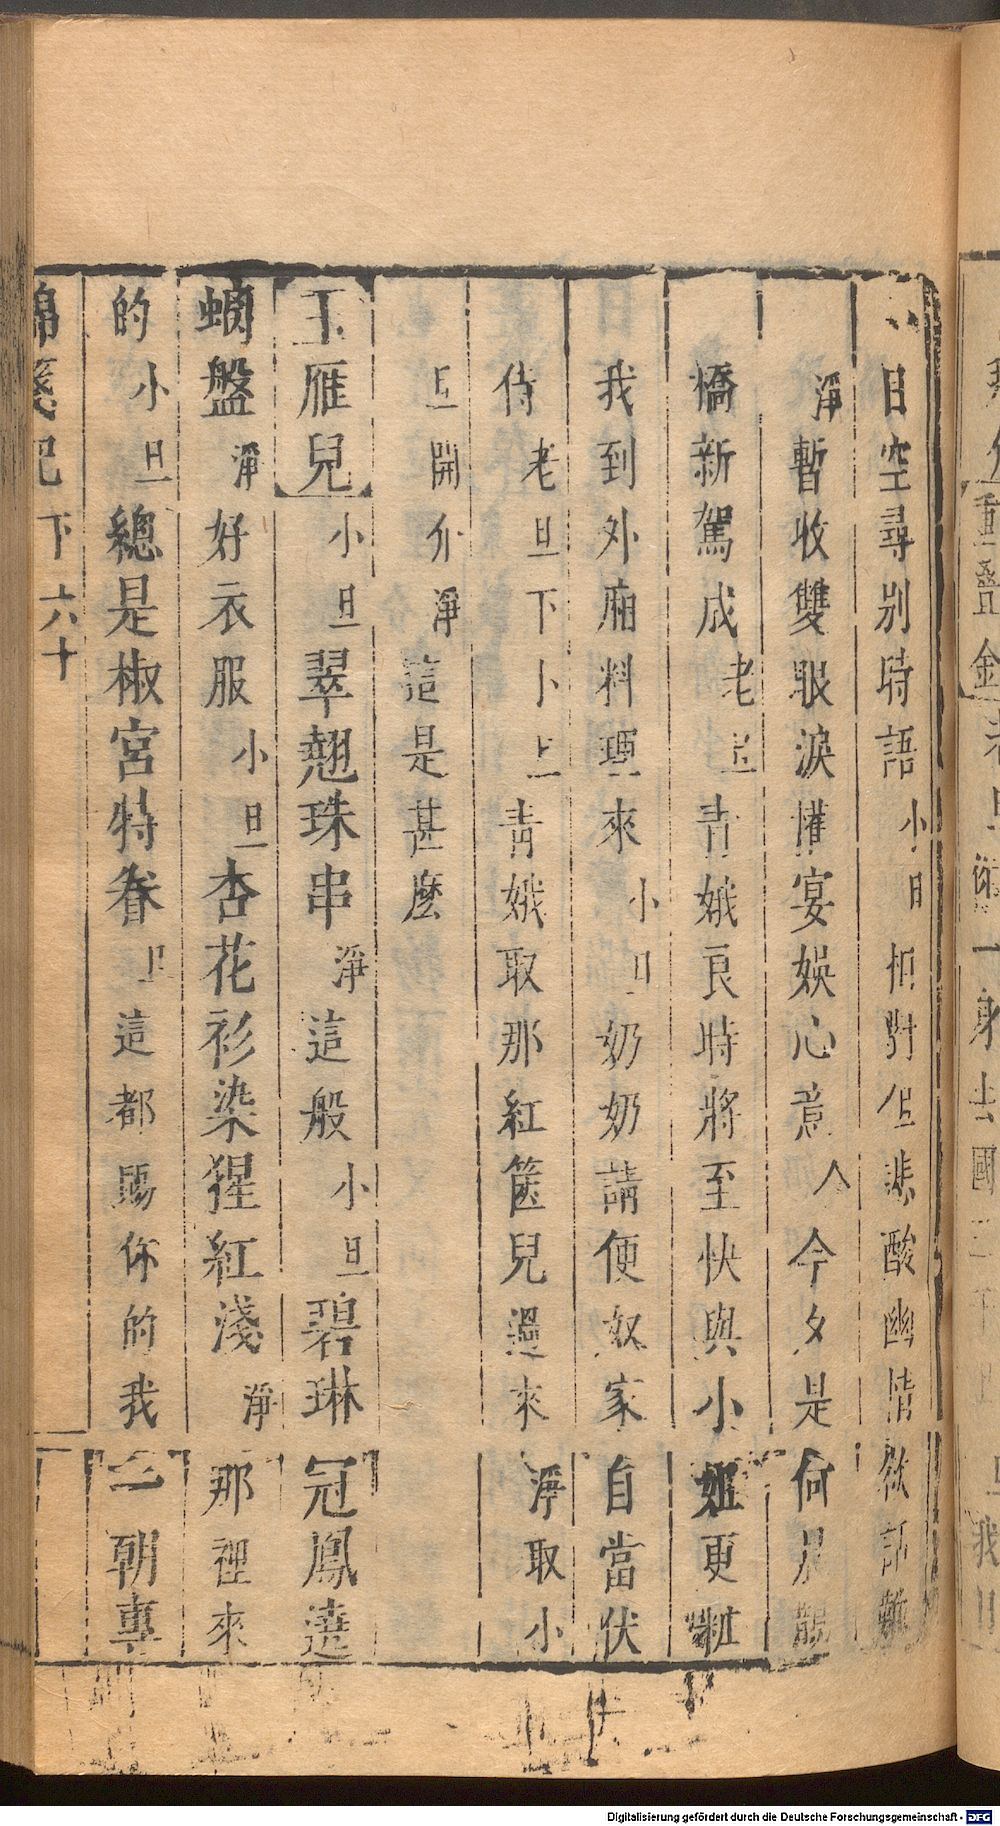 日空尋別時語小旦相對但悲酸幽情欲話難
淨暫收雙眼淚權宴娛心意介今夕是何
橋新駕成老旦青娥良時將至快與小姐更粧
我到外廂料理來小旦奶奶請便奴家自當伏
侍老旦下卜上青娥取那紅篋兒過來淨取小
上開介淨這是甚麽
玉雁兒小旦翠翹珠串淨這般小旦碧琳冠鳳遶
螭盤淨好衣服小旦杏花衫染猩紅淺淨那裡來
的小旦總是椒宮特眷旦這都賜你的我一朝專
錦箋記下六十
Digitalisierung gefördert durch die Deutsche Forschungsgemeinschaft - DFG